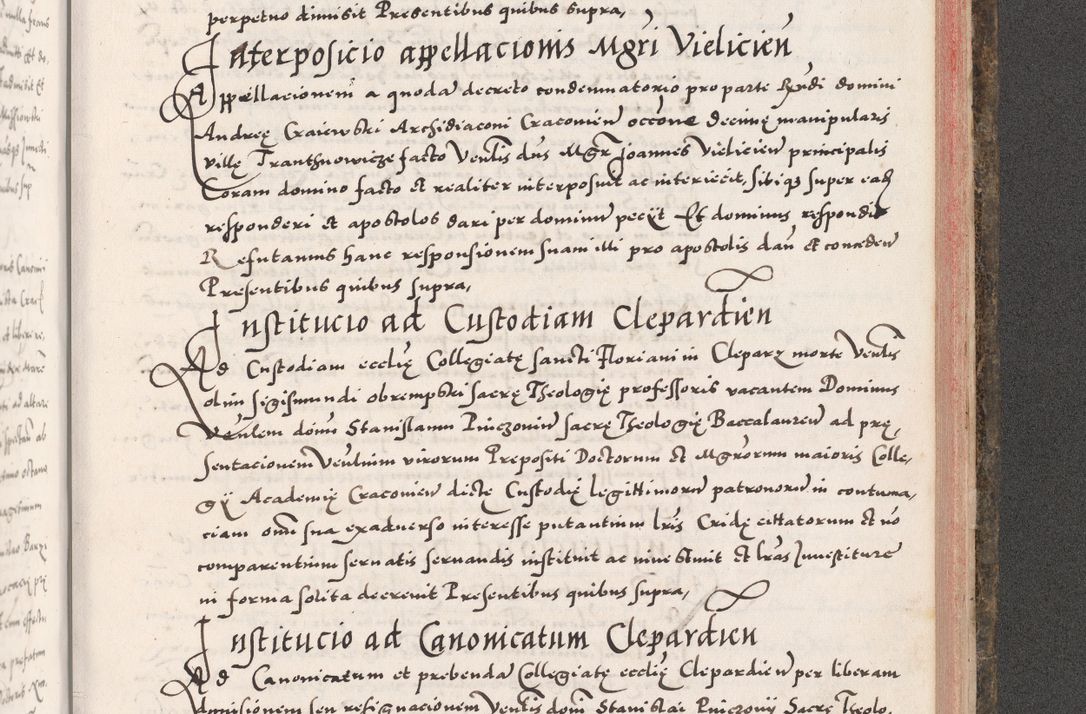 perpetuo dimisit Presentibus quibus supra,
Interposicio appellacionis Mgri Vielicien
Appellacionem a quoda decreto condemnatorio pro parte Rndi domini
Andreę Craiewski Archidiaconi Cracovien occone decimę manipularis
villę Tranthnowicze facto Venlis dns Mgr Joannes Vielicien principalis
Coram domino facto et realiter interposuit ac interiecit, sibiqz super eadem
responderi et apostolos dari per dominum peciit Et dominus respondit
Refutamus hanc responsionem suam illi pro apostolis dan et conceden
Presentibus quibus supra,
Institucio ad Custodiam Clepardien
Ad Custodiam ecclię Collegiatę sancti Floriani in Cleparz morte Venlis
olim Sigismundi obrempski sacrę Theologię professoris vacantem Dominus
Venlem dnum Stanislaum Pinczovien sacrę Theologię Baccalaureu ad prę,
sentacionem Venlium virorum Prepositi Doctorum et Mgrorum maioris Colle,
gÿ Academię Cracovien dictę Custodię legittimoru patronoru in contuma,
ciam omi sua exadverso interesse putantium lris Cridę cittatorum et no
comparentium servatis servandis instituit ac investivit et lras Investiture
in forma solita decrevit Presentibus quibus supra,
Institucio ad Canonicatum Clepardien
Ad Canonicatum et prebenda Collegiatę ecclię Clepardien per liberam
dimisionem seu resignacionem Venlis domi Stanislai Pinczovÿ Sacrę Theolo,